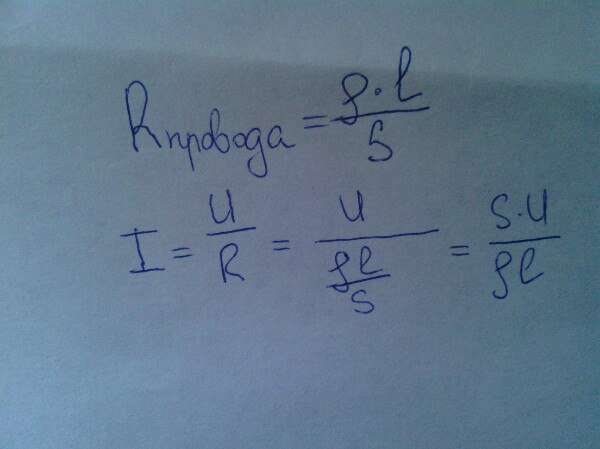 Rпровода = ρ·l/S
I = U/R = U/(ρl/S) = S·U/ρl